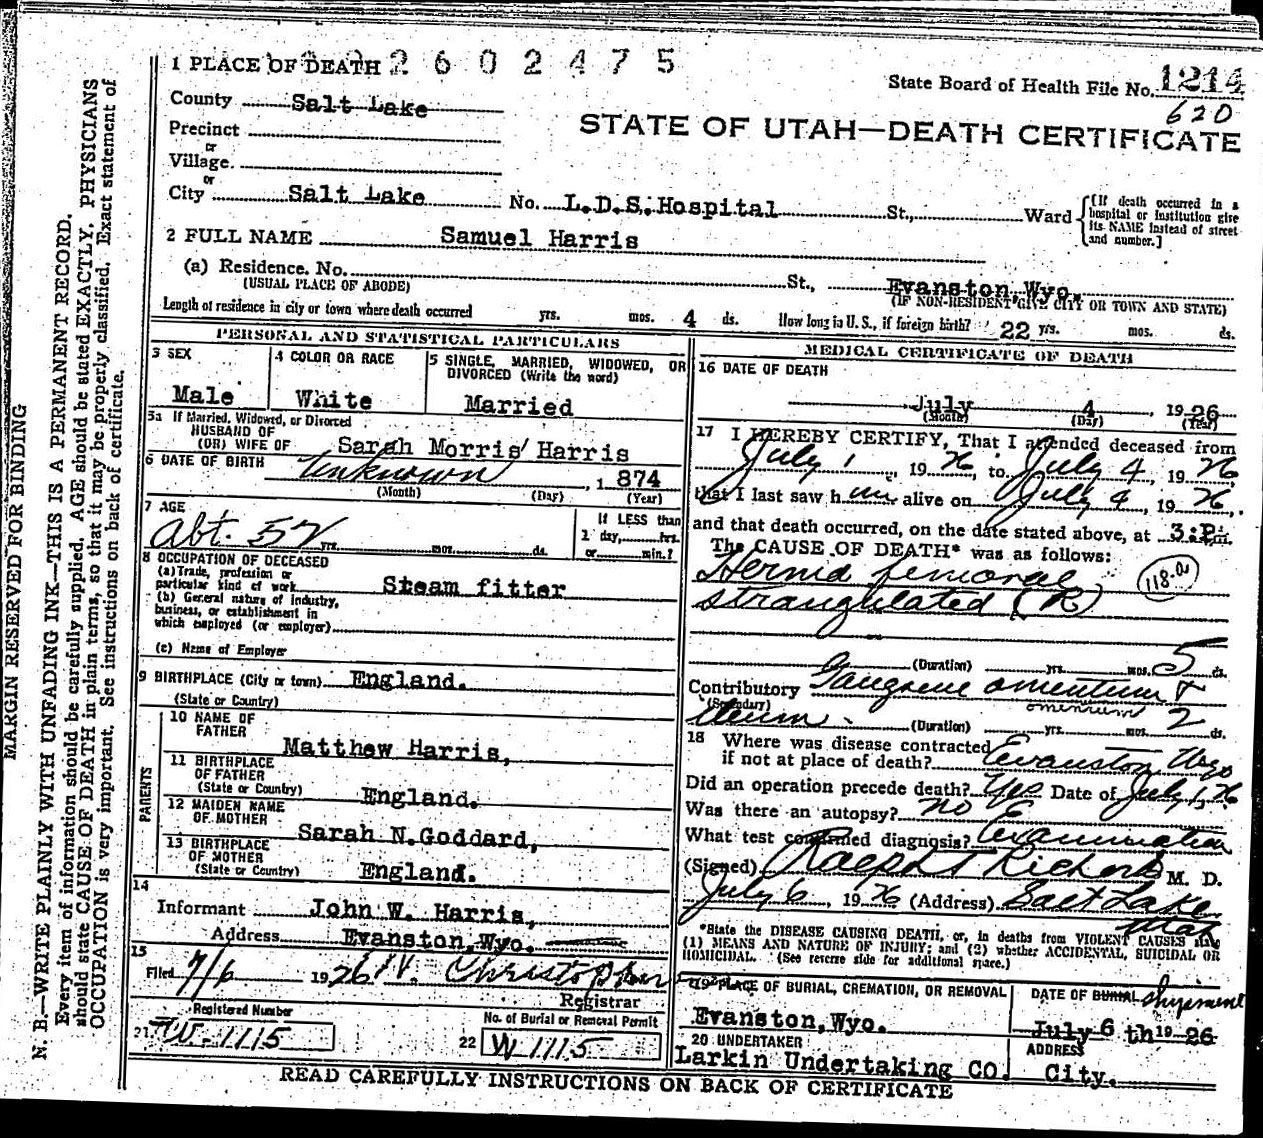 MARGIN RESERVED FOR BINDING
N. B.—WRITE PLAINLY WITH UNFADING INK—THIS IS A PERMANENT RECORD.
Every item of information should be carefully supplied. AGE should be stated EXACTLY. PHYSICIANS
should state CAUSE OF DEATH in plain terms, so that it may be properly classified. Exact statement of
OCCUPATION is very important. See instructions on back of certificate.
1 PLACE OF DEATH 2602475
State Board of Health File No. 1214
620
County Salt Lake
STATE OF UTAH—DEATH CERTIFICATE
Precinct
or
Village
or
City Salt Lake No. L.D.S. Hospital St., Ward
[If death occurred in a
hospital or institution give
its NAME instead of street
and number.]
2 FULL NAME Samuel Harris
(a) Residence. No. St., Evanston Wyo.
(USUAL PLACE OF ABODE) (IF NON-RESIDENT GIVE CITY OR TOWN AND STATE)
Length of residence in city or town where death occurred yrs. mos. 4 ds. How long in U. S., if foreign birth? 22 yrs. mos. ds.
PERSONAL AND STATISTICAL PARTICULARS
3 SEX
Male
4 COLOR OR RACE
White
5 SINGLE, MARRIED, WIDOWED, OR
DIVORCED (Write the word)
Married
5a If Married, Widowed, or Divorced
HUSBAND OF
(OR) WIFE OF Sarah Morris Harris
6 DATE OF BIRTH Unknown, 1874
(Month) (Day) (Year)
7 AGE
Abt. 52 yrs. mos. ds.
If LESS than
1 day, hrs.
or min.?
8 OCCUPATION OF DECEASED
(a) Trade, profession or
particular kind of work Steam fitter
(b) General nature of industry,
business, or establishment in
which employed (or employer)
(c) Name of Employer
9 BIRTHPLACE (City or town) England.
(State or Country)
PARENTS
10 NAME OF
FATHER Matthew Harris,
11 BIRTHPLACE
OF FATHER
(State or Country) England.
12 MAIDEN NAME
OF MOTHER Sarah N. Goddard,
13 BIRTHPLACE
OF MOTHER
(State or Country) England.
14
Informant John W. Harris,
Address Evanston, Wyo.
15
Filed 7/6 1926 Christopherson
Registrar
Registered Number
21 W-1115
No. of Burial or Removal Permit
22 W 1115
MEDICAL CERTIFICATE OF DEATH
16 DATE OF DEATH
July 4, 1926
(Month) (Day) (Year)
17 I HEREBY CERTIFY, That I attended deceased from
July 1, 1926, to July 4, 1926,
that I last saw him alive on July 4, 1926,
and that death occurred, on the date stated above, at 3:P.m.
The CAUSE OF DEATH* was as follows:
Hernia femoral
118-a
strangulated (R)
(Duration) yrs. mos. 5 ds.
Contributory Gangrene omentum &
(Secondary) omentum
Ileum. (Duration) yrs. mos. 2 ds.
18 Where was disease contracted
if not at place of death? Evanston Wyo
Did an operation precede death? Yes Date of July 1, 26
Was there an autopsy? no
What test confirmed diagnosis? Examination
(Signed) Ralph T Richards M. D.
July 6, 1926 (Address) Salt Lake
Utah
*State the DISEASE CAUSING DEATH, or, in deaths from VIOLENT CAUSES state
(1) MEANS AND NATURE OF INJURY; and (2) whether ACCIDENTAL, SUICIDAL OR
HOMICIDAL. (See reverse side for additional space.)
19 PLACE OF BURIAL, CREMATION, OR REMOVAL
Evanston, Wyo.
DATE OF BURIAL shipment
July 6 th 1926
20 UNDERTAKER
Larkin Undertaking CO.
ADDRESS
City.
READ CAREFULLY INSTRUCTIONS ON BACK OF CERTIFICATE